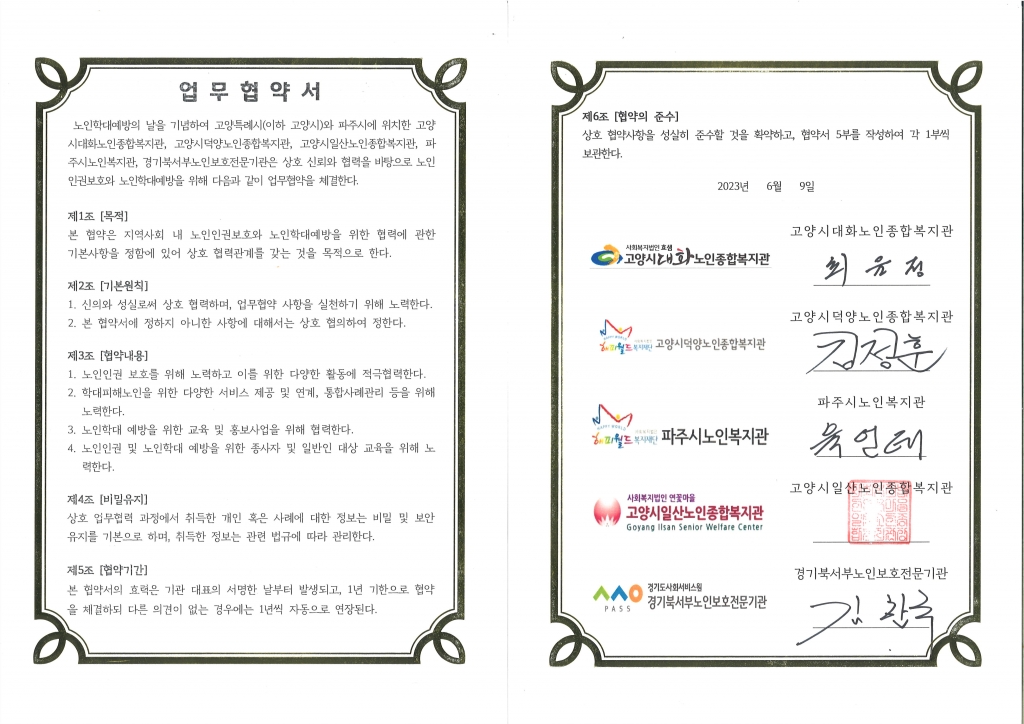 업무협약서
노인학대예방의 날을 기념하여 고양특례시(이하 고양시)와 파주시에 위치한 고양
시대화노인종합복지관, 고양시덕양노인종합복지관, 고양시일산노인종합복지관, 파
주시노인복지관, 경기북서부노인보호전문기관은 상호 신뢰와 협력을 바탕으로 노인
인권보호와 노인학대예방을 위해 다음과 같이 업무협약을 체결한다.
제1조 [목적]
본 협약은 지역사회 내 노인인권보호와 노인학대예방을 위한 협력에 관한
기본사항을 정함에 있어 상호 협력관계를 갖는 것을 목적으로 한다.
제2조 [기본원칙]
1. 신의와 성실로써 상호 협력하며, 업무협약 사항을 실천하기 위해 노력한다.
2. 본 협약서에 정하지 아니한 사항에 대해서는 상호 협의하여 정한다.
제3조 [협약내용]
1. 노인인권 보호를 위해 노력하고 이를 위한 다양한 활동에 적극협력한다.
2. 학대피해노인을 위한 다양한 서비스 제공 및 연계, 통합사례관리 등을 위해
노력한다.
3. 노인학대 예방을 위한 교육 및 홍보사업을 위해 협력한다.
4. 노인인권 및 노인학대 예방을 위한 종사자 및 일반인 대상 교육을 위해 노
력한다.
제4조 [비밀유지]
상호 업무협력 과정에서 취득한 개인 혹은 사례에 대한 정보는 비밀 및 보안
유지를 기본으로 하며, 취득한 정보는 관련 법규에 따라 관리한다.
제5조 [협약기간]
본 협약서의 효력은 기관 대표의 서명한 날부터 발생되고, 1년 기한으로 협약
을 체결하되 다른 의견이 없는 경우에는 1년씩 자동으로 연장된다.
제6조 [협약의 준수]
상호 협약사항을 성실히 준수할 것을 확약하고, 협약서 5부를 작성하여 각 1부씩
보관한다.
2023년 6월 9일
고양시대화노인종합복지관
사회복지법인 효샘
고양시대화노인종합복지관
최윤정
고양시덕양노인종합복지관
HAPPY WORLD
해피월드 복지재단 고양시덕양노인종합복지관
김정훈
파주시노인복지관
HAPPY WORLD
해피월드 복지재단 파주시노인복지관
고양시일산노인종합복지관
사회복지법인 연꽃마을
고양시일산노인종합복지관
Goyang Ilsan Senior Welfare Center
경기북서부노인보호전문기관
경기도사회서비스원
PASS 경기북서부노인보호전문기관